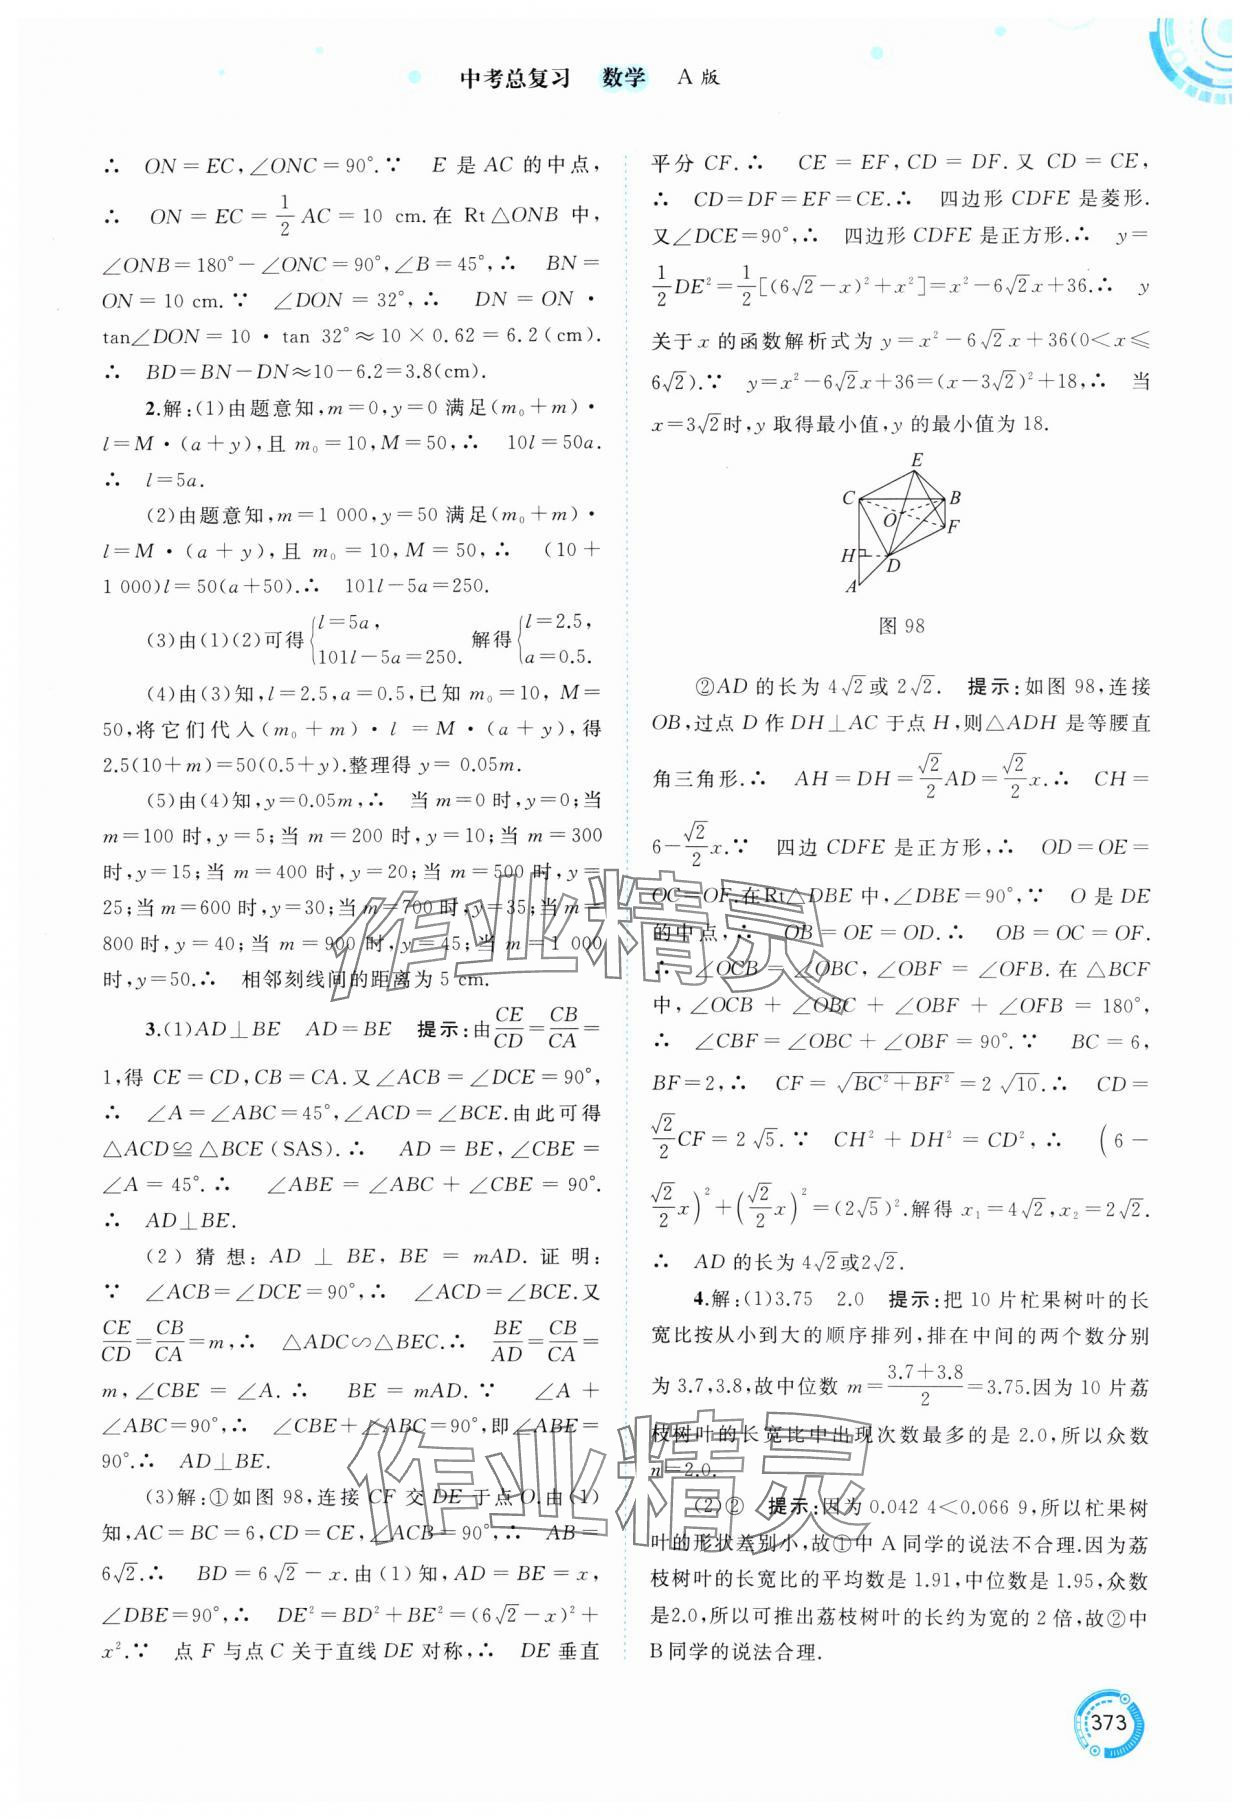 中考总复习 数学 A 版
∴ ON=EC,∠ONC=90°.∵ E 是 AC 的中点,
∴ ON=EC=1/2AC=10 cm.在 Rt△ONB 中,
∠ONB=180°-∠ONC=90°,∠B=45°,∴ BN=
ON=10 cm.∵ ∠DON=32°,∴ DN=ON·
tan∠DON=10·tan 32°≈10×0.62=6.2(cm).
∴ BD=BN-DN≈10-6.2=3.8(cm).
2.解:(1)由题意知,m=0,y=0 满足(m₀+m)·
l=M·(a+y),且 m₀=10,M=50,∴ 10l=50a.
∴ l=5a.
(2)由题意知,m=1 000,y=50 满足(m₀+m)·
l=M·(a+y),且 m₀=10,M=50,∴ (10+
1 000)l=50(a+50).∴ 101l-5a=250.
(3)由(1)(2)可得{l=5a, 101l-5a=250. 解得{l=2.5, a=0.5.
(4)由(3)知,l=2.5,a=0.5,已知 m₀=10,M=
50,将它们代入(m₀+m)·l=M·(a+y),得
2.5(10+m)=50(0.5+y).整理得 y=0.05m.
(5)由(4)知,y=0.05m,∴ 当 m=0 时,y=0;当
m=100 时,y=5;当 m=200 时,y=10;当 m=300
时,y=15;当 m=400 时,y=20;当 m=500 时,y=
25;当 m=600 时,y=30;当 m=700 时,y=35;当 m=
800 时,y=40;当 m=900 时,y=45;当 m=1 000
时,y=50.∴ 相邻刻线间的距离为 5 cm.
3.(1)AD⊥BE AD=BE 提示:由CE/CD=CB/CA=
1,得 CE=CD,CB=CA.又∠ACB=∠DCE=90°,
∴ ∠A=∠ABC=45°,∠ACD=∠BCE.由此可得
△ACD≌△BCE(SAS).∴ AD=BE,∠CBE=
∠A=45°.∴ ∠ABE=∠ABC+∠CBE=90°.
∴ AD⊥BE.
(2)猜想:AD⊥BE,BE=mAD.证明:
∵ ∠ACB=∠DCE=90°,∴ ∠ACD=∠BCE.又
CE/CD=CB/CA=m,∴ △ADC∽△BEC.∴ BE/AD=CB/CA=
m,∠CBE=∠A.∴ BE=mAD.∵ ∠A+
∠ABC=90°,∴ ∠CBE+∠ABC=90°,即∠ABE=
90°.∴ AD⊥BE.
(3)解:①如图 98,连接 CF 交 DE 于点 O.由(1)
知,AC=BC=6,CD=CE,∠ACB=90°,∴ AB=
6√2.∴ BD=6√2-x.由(1)知,AD=BE=x,
∠DBE=90°,∴ DE²=BD²+BE²=(6√2-x)²+
x².∵ 点 F 与点 C 关于直线 DE 对称,∴ DE 垂直
平分 CF.∴ CE=EF,CD=DF.又 CD=CE,
∴ CD=DF=EF=CE.∴ 四边形 CDFE 是菱形.
又∠DCE=90°,∴ 四边形 CDFE 是正方形.∴ y=
1/2DE²=1/2[(6√2-x)²+x²]=x²-6√2x+36.∴ y
关于 x 的函数解析式为 y=x²-6√2x+36(0<x≤
6√2).∵ y=x²-6√2x+36=(x-3√2)²+18,∴ 当
x=3√2时,y 取得最小值,y 的最小值为 18.
E
C
B
O
F
H
D
A
图 98
②AD 的长为 4√2或 2√2. 提示:如图 98,连接
OB,过点 D 作 DH⊥AC 于点 H,则△ADH 是等腰直
角三角形.∴ AH=DH=√2/2AD=√2/2x.∴ CH=
6-√2/2x.∵ 四边 CDFE 是正方形,∴ OD=OE=
OC=OF.在Rt△DBE 中,∠DBE=90°,∵ O 是 DE
的中点,∴ OB=OE=OD.∴ OB=OC=OF.
∴ ∠OCB=∠OBC,∠OBF=∠OFB.在△BCF
中,∠OCB+∠OBC+∠OBF+∠OFB=180°,
∴ ∠CBF=∠OBC+∠OBF=90°.∵ BC=6,
BF=2,∴ CF=√(BC²+BF²)=2√10.∴ CD=
√2/2CF=2√5.∵ CH²+DH²=CD²,∴ (6-
√2/2x)²+(√2/2x)²=(2√5)².解得 x₁=4√2,x₂=2√2.
∴ AD 的长为 4√2或2√2.
4.解:(1)3.75 2.0 提示:把 10 片杧果树叶的长
宽比按从小到大的顺序排列,排在中间的两个数分别
为 3.7,3.8,故中位数 m=(3.7+3.8)/2=3.75.因为 10 片荔
枝树叶的长宽比中出现次数最多的是 2.0,所以众数
n=2.0.
(2)② 提示:因为 0.042 4<0.066 9,所以杧果树
叶的形状差别小,故①中 A 同学的说法不合理.因为荔
枝树叶的长宽比的平均数是 1.91,中位数是 1.95,众数
是2.0,所以可推出荔枝树叶的长约为宽的 2 倍,故②中
B 同学的说法合理.
作业精灵
作业精灵
373